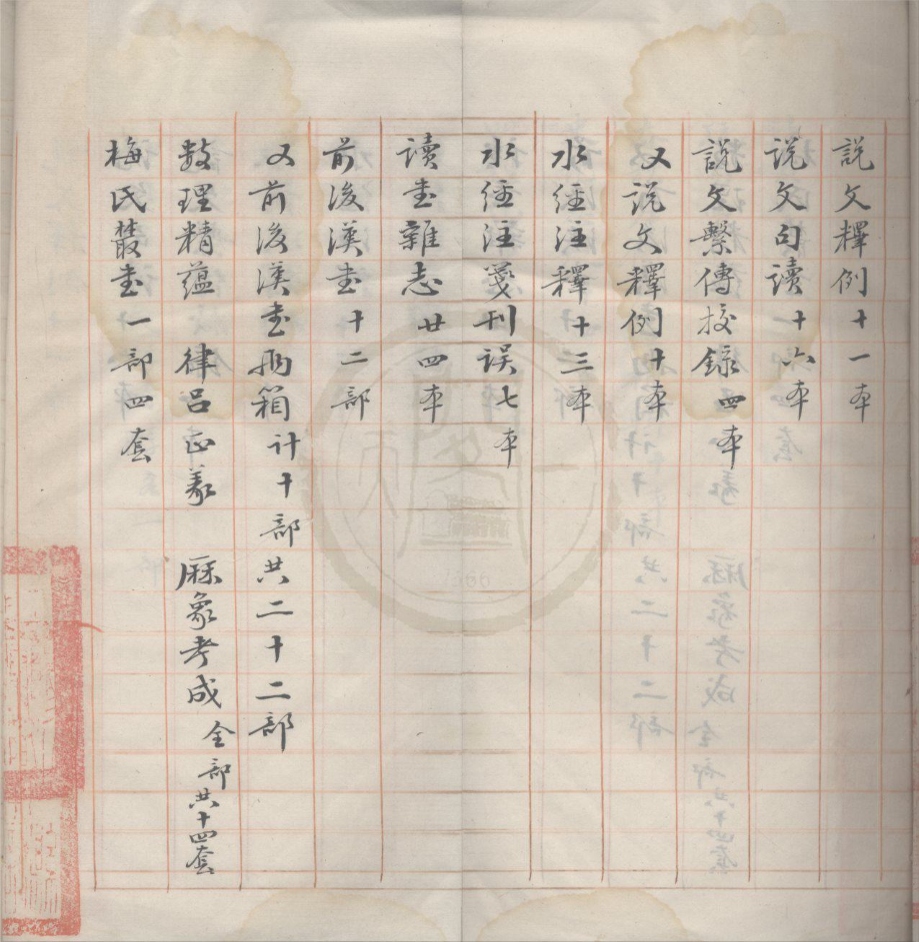 説文釋例十一本
説文句讀十六本
説文繫傳挍錄四本
又説文釋例十本
水經注釋十三本
水經注箋刊误七本
讀書雜志廿四本
前後漢書十二部
又前後漢書兩箱計十部共二十二部
数理精蕴 律吕正義 厤象考成 全部共十四套
梅氏叢書一部四套